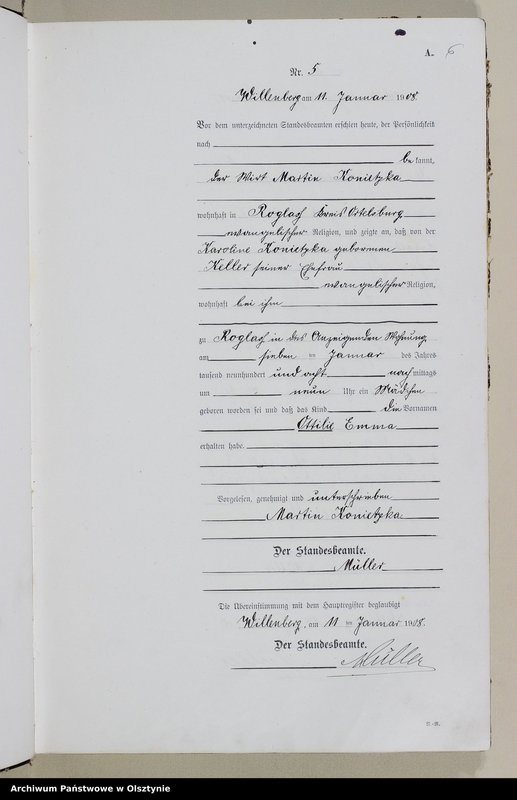 A. 6
Nr. 5
Willenberg am 11. Januar 1908.
Vor dem unterzeichneten Standesbeamten erschien heute, der Persönlichkeit
nach
bekannt,
der Wirt Martin Konietzka
wohnhaft in Roglas Kreis Ortelsburg
evangelischer Religion, und zeigte an, daß von der
Karoline Konietzka geborenen
Keller seiner Ehefrau
evangelischer Religion,
wohnhaft bei ihm
zu Roglas in des Anzeigenden Wohnung
am sieben ten Januar des Jahres
tausend neunhundert und acht nachmittags
um neun Uhr ein Mädchen
geboren worden sei und daß das Kind die Vornamen
Ottilie Emma
erhalten habe.
Vorgelesen, genehmigt und unterschrieben
Martin Konietzka
Der Standesbeamte.
Müller
Die Übereinstimmung mit dem Hauptregister beglaubigt
Willenberg, am 11 ten Januar 1908.
Der Standesbeamte.
Müller
Archiwum Państwowe w Olsztynie